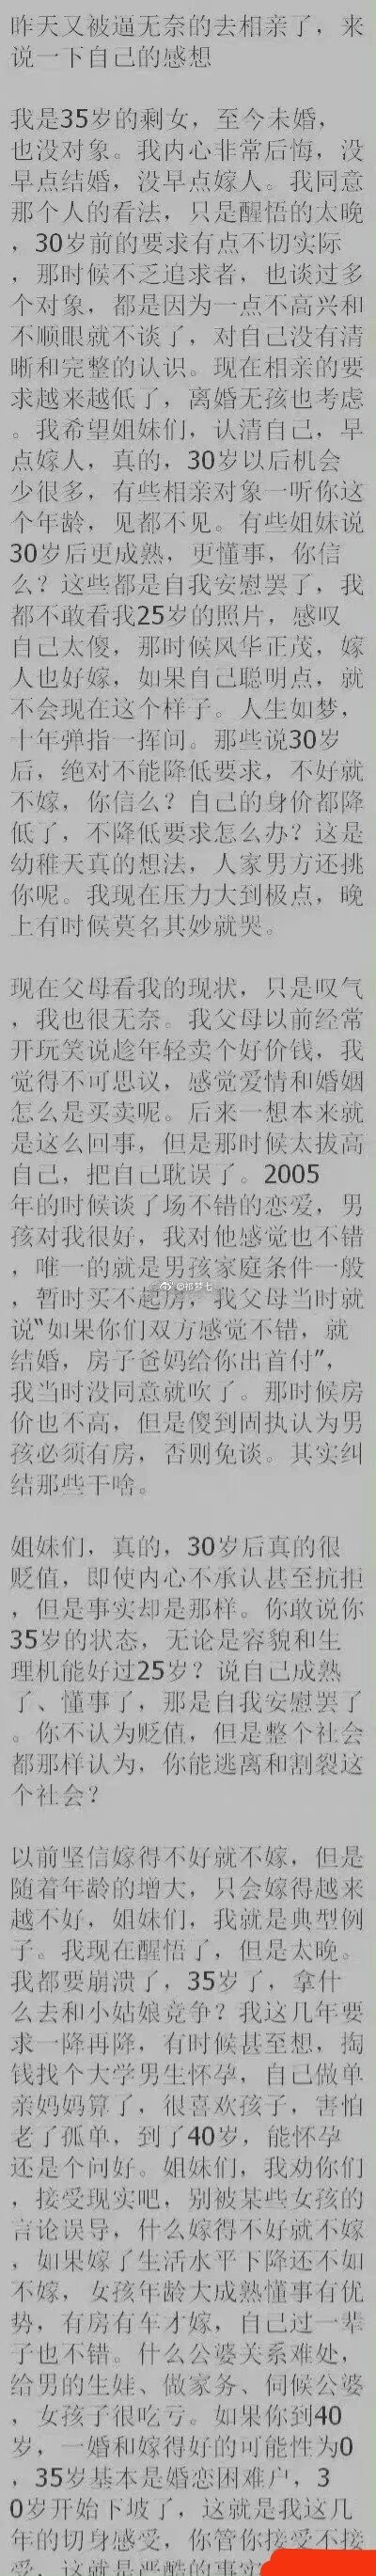 昨天又被逼无奈的去相亲了，来
说一下自己的感想
我是35岁的剩女，至今未婚，
也没对象。我内心非常后悔，没
早点结婚，没早点嫁人。我同意
那个人的看法，只是醒悟的太晚
，30岁前的要求有点不切实际
，那时候不乏追求者，也谈过多
个对象，都是因为一点不高兴和
不顺眼就不谈了，对自己没有清
晰和完整的认识。现在相亲的要
求越来越低了，离婚无孩也考虑
。我希望姐妹们，认清自己，早
点嫁人，真的，30岁以后机会
少很多，有些相亲对象一听你这
个年龄，见都不见。有些姐妹说
30岁后更成熟，更懂事，你信
么？这些都是自我安慰罢了，我
都不敢看我25岁的照片，感叹
自己太傻，那时候风华正茂，嫁
人也好嫁，如果自己聪明点，就
不会现在这个样子。人生如梦，
十年弹指一挥间。那些说30岁
后，绝对不能降低要求，不好就
不嫁，你信么？自己的身价都降
低了，不降低要求怎么办？这是
幼稚天真的想法，人家男方还挑
你呢。我现在压力大到极点，晚
上有时候莫名其妙就哭。
现在父母看我的现状，只是叹气
，我也很无奈。我父母以前经常
开玩笑说趁年轻卖个好价钱，我
觉得不可思议，感觉爱情和婚姻
怎么是买卖呢。后来一想本来就
是这么回事，但是那时候太拔高
自己，把自己耽误了。2005
年的时候谈了场不错的恋爱，男
孩对我很好，我对他感觉也不错
，唯一的就是男孩家庭条件一般
，暂时买不起房，我父母当时就
@祁梦七
说“如果你们双方感觉不错，就
结婚，房子爸妈给你出首付”，
我当时没同意就吹了。那时候房
价也不高，但是傻到固执认为男
孩必须有房，否则免谈。其实纠
结那些干啥。
姐妹们，真的，30岁后真的很
贬值，即使内心不承认甚至抗拒
，但是事实却是那样。你敢说你
35岁的状态，无论是容貌和生
理机能好过25岁？说自己成熟
了、懂事了，那是自我安慰罢了
。你不认为贬值，但是整个社会
都那样认为，你能逃离和割裂这
个社会？
以前坚信嫁得不好就不嫁，但是
随着年龄的增大，只会嫁得越来
越不好，姐妹们，我就是典型例
子。我现在醒悟了，但是太晚。
我都要崩溃了，35岁了，拿什
么去和小姑娘竞争？我这几年要
求一降再降，有时候甚至想，掏
钱找个大学男生怀孕，自己做单
亲妈妈算了，很喜欢孩子，害怕
老了孤单，到了40岁，能怀孕
还是个问好。姐妹们，我劝你们
，接受现实吧，别被某些女孩的
言论误导，什么嫁得不好就不嫁
，如果嫁了生活水平下降还不如
不嫁，女孩年龄大成熟懂事有优
势，有房有车才嫁，自己过一辈
子也不错。什么公婆关系难处，
给男的生娃、做家务、伺候公婆
，女孩子很吃亏。如果你到40
岁，一婚和嫁得好的可能性为0
，35岁基本是婚恋困难户，3
0岁开始下坡了，这就是我这几
年的切身感受，你管你接受不接
受，这就是严酷的事实